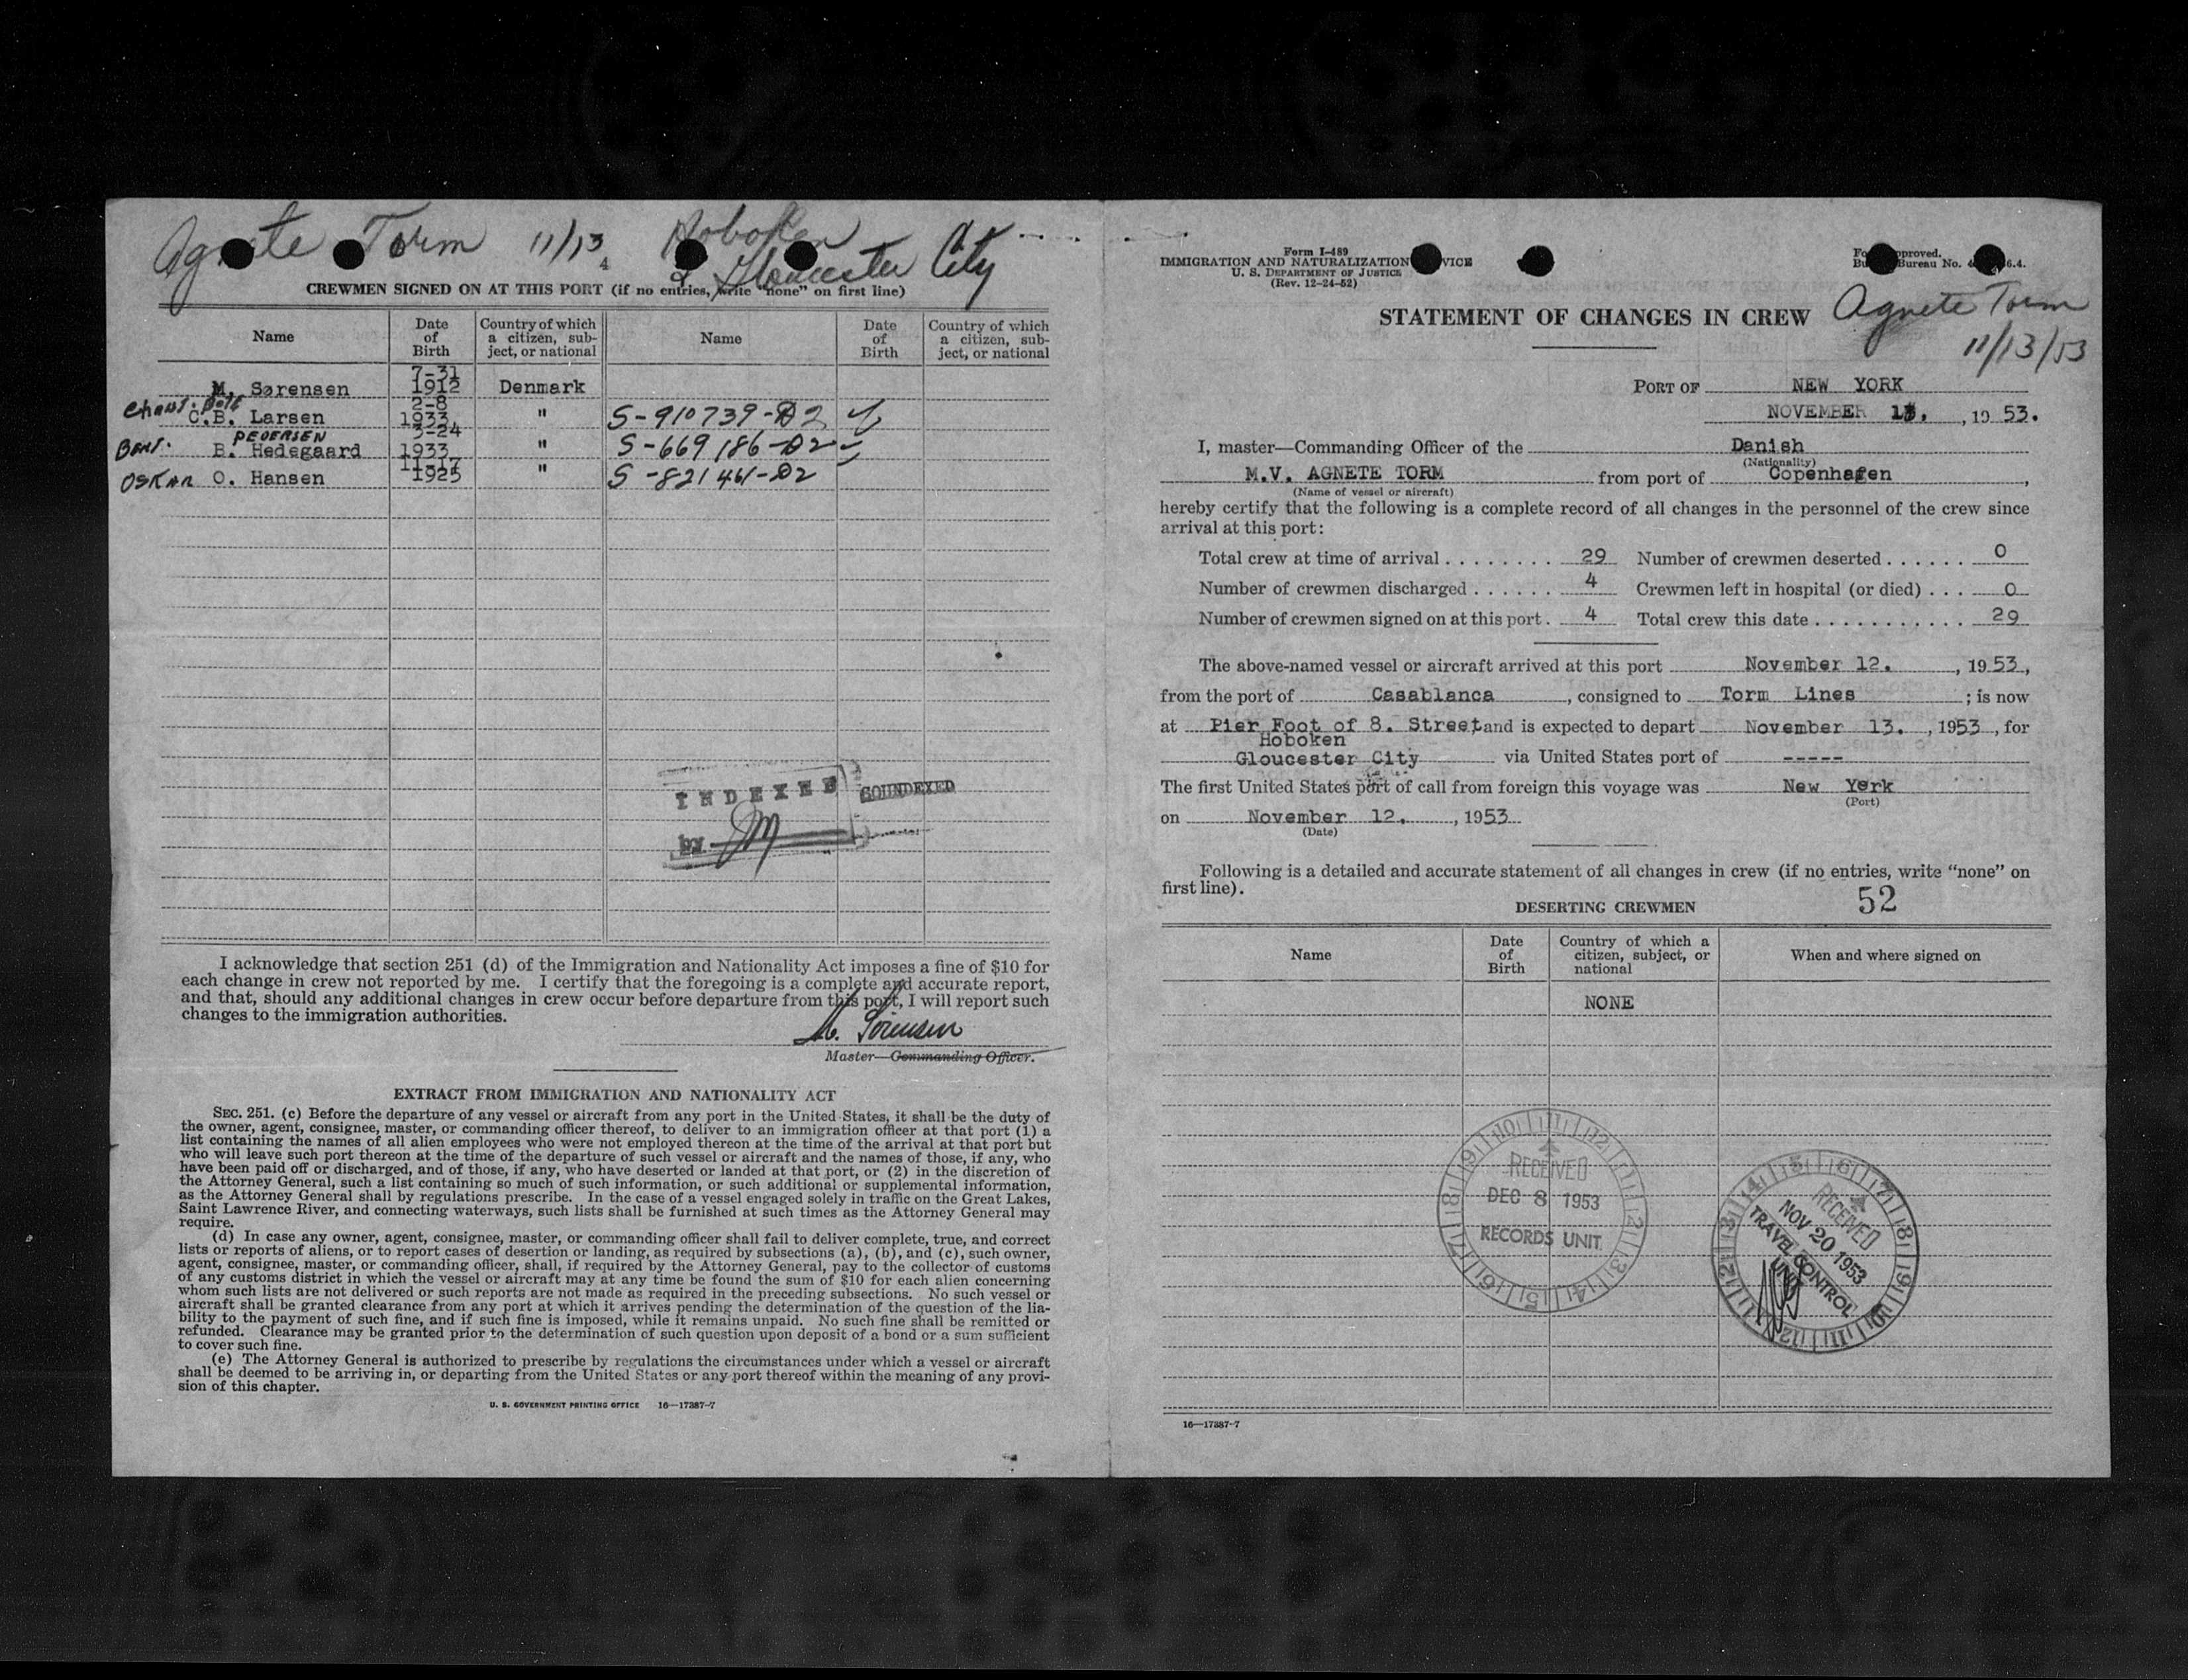 Agnete Torm 11/13 Hoboken
& Gloucester City
CREWMEN SIGNED ON AT THIS PORT (if no entries, write "none" on first line)
Name
Date of Birth
Country of which a citizen, subject, or national
Name
Date of Birth
Country of which a citizen, subject, or national
M. Sørensen 7-31 1912 Denmark
C.B. Larsen 2-8 1933 " S-910739-D2
PEDERSEN
Bent. B. Hedegaard 3-24 1933 " S-669186-D2
OSKAR O. Hansen 11-17 1925 " S-821461-D2
INDEXED
SOUNDEXED
by
I acknowledge that section 251 (d) of the Immigration and Nationality Act imposes a fine of $10 for
each change in crew not reported by me. I certify that the foregoing is a complete and accurate report,
and that, should any additional changes in crew occur before departure from this port, I will report such
changes to the immigration authorities.
M. Sørensen
Master—Commanding Officer.
EXTRACT FROM IMMIGRATION AND NATIONALITY ACT
SEC. 251. (c) Before the departure of any vessel or aircraft from any port in the United States, it shall be the duty of
the owner, agent, consignee, master, or commanding officer thereof, to deliver to an immigration officer at that port (1) a
list containing the names of all alien employees who were not employed thereon at the time of the arrival at that port but
who will leave such port thereon at the time of the departure of such vessel or aircraft and the names of those, if any, who
have been paid off or discharged, and of those, if any, who have deserted or landed at that port, or (2) in the discretion of
the Attorney General, such a list containing so much of such information, or such additional or supplemental information,
as the Attorney General shall by regulations prescribe. In the case of a vessel engaged solely in traffic on the Great Lakes,
Saint Lawrence River, and connecting waterways, such lists shall be furnished at such times as the Attorney General may
require.
(d) In case any owner, agent, consignee, master, or commanding officer shall fail to deliver complete, true, and correct
lists or reports of aliens, or to report cases of desertion or landing, as required by subsections (a), (b), and (c), such owner,
agent, consignee, master, or commanding officer, shall, if required by the Attorney General, pay to the collector of customs
of any customs district in which the vessel or aircraft may at any time be found the sum of $10 for each alien concerning
whom such lists are not delivered or such reports are not made as required in the preceding subsections. No such vessel or
aircraft shall be granted clearance from any port at which it arrives pending the determination of the question of the lia-
bility to the payment of such fine, and if such fine is imposed, while it remains unpaid. No such fine shall be remitted or
refunded. Clearance may be granted prior to the determination of such question upon deposit of a bond or a sum sufficient
to cover such fine.
(e) The Attorney General is authorized to prescribe by regulations the circumstances under which a vessel or aircraft
shall be deemed to be arriving in, or departing from the United States or any port thereof within the meaning of any provi-
sion of this chapter.
U. S. GOVERNMENT PRINTING OFFICE 16—17387-7
Form I-489
IMMIGRATION AND NATURALIZATION VICE
U. S. DEPARTMENT OF JUSTICE
(Rev. 12-24-52)
proved.
Bureau No. 6.4.
STATEMENT OF CHANGES IN CREW
Agnete Torm
11/13/53
PORT OF NEW YORK
NOVEMBER 13, 1953.
I, master—Commanding Officer of the Danish
(Nationality)
M.V. AGNETE TORM from port of Copenhagen,
(Name of vessel or aircraft)
hereby certify that the following is a complete record of all changes in the personnel of the crew since
arrival at this port:
Total crew at time of arrival . . . . . . . . 29 Number of crewmen deserted . . . . . . 0
Number of crewmen discharged . . . . . . 4 Crewmen left in hospital (or died) . . . 0
Number of crewmen signed on at this port . 4 Total crew this date . . . . . . . . . . . 29
The above-named vessel or aircraft arrived at this port November 12. , 1953,
from the port of Casablanca, consigned to Torm Lines ; is now
at Pier Foot of 8. Street, and is expected to depart November 13. , 1953, for
Hoboken
Gloucester City via United States port of -----
The first United States port of call from foreign this voyage was New York
(Port)
on November 12. , 1953
(Date)
Following is a detailed and accurate statement of all changes in crew (if no entries, write "none" on
first line).
52
DESERTING CREWMEN
Name
Date of Birth
Country of which a citizen, subject, or national
When and where signed on
NONE
RECEIVED
DEC 8 1953
RECORDS UNIT
RECEIVED
NOV 20 1953
TRAVEL CONTROL
UNIT
16—17387-7